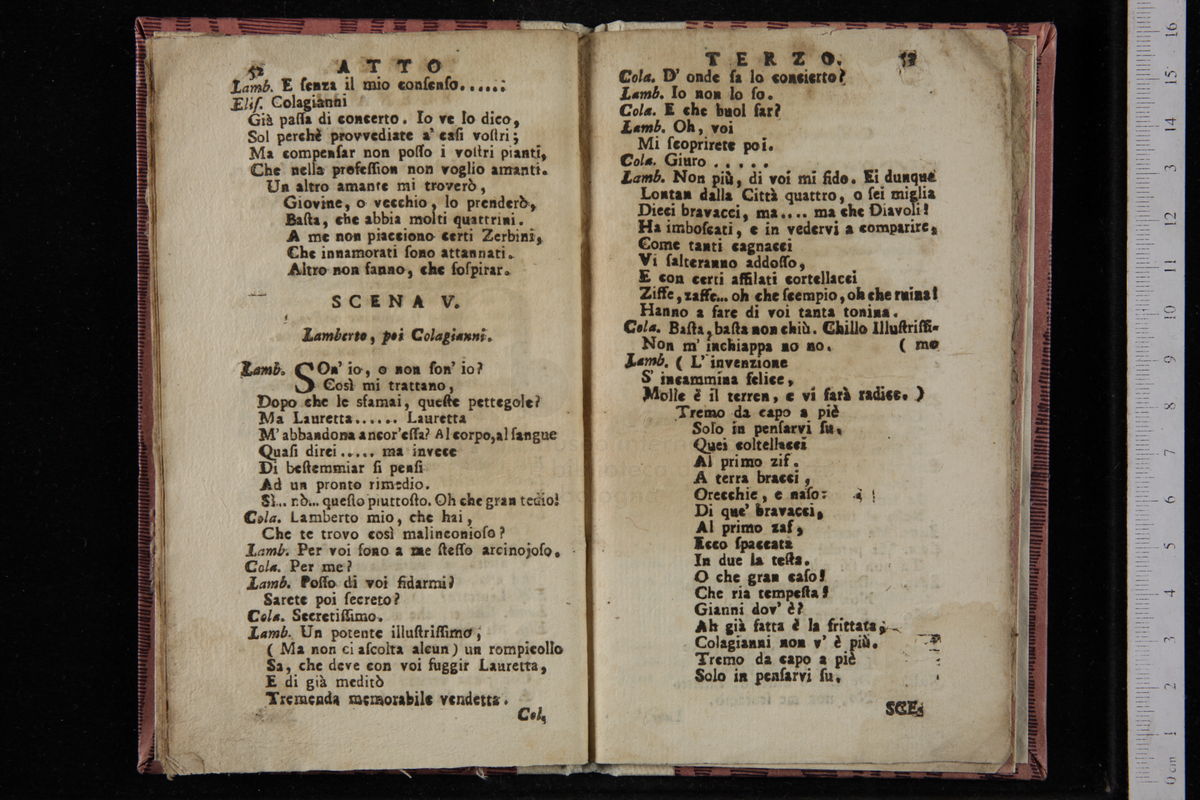 52 ATTO
Lamb. E ſenza il mio conſenſo......
Eliſ. Colagianni
Già paſſa di concerto. Io ve lo dico,
Sol perchè provvediate a' caſi voſtri;
Ma compenſar non poſſo i voſtri pianti,
Che nella profeſſion non voglio amanti.
Un altro amante mi troverò,
Giovine, o vecchio, lo prenderò,
Baſta, che abbia molti quattrini.
A me non piacciono certi Zerbini,
Che innamorati ſono attannati.
Altro non fanno, che ſoſpirar.
SCENA V.
Lamberto, poi Colagianni.
Lamb. SOn' io, o non ſon' io?
Così mi trattano,
Dopo che le sfamai, queſte pettegole?
Ma Lauretta...... Lauretta
M'abbandona ancor'eſſa? Al corpo, al ſangue
Quaſi direi..... ma invece
Di beſtemmiar ſi penſi
Ad un pronto rimedio.
Sì... nò... queſto piuttoſto. Oh che gran tedio!
Cola. Lamberto mio, che hai,
Che te trovo così malinconioſo?
Lamb. Per voi ſono a me ſteſſo arcinojoſo.
Cola. Per me?
Lamb. Poſſo di voi fidarmi?
Sarete poi ſecreto?
Cola. Secretiſſimo.
Lamb. Un potente illuſtriſſimo,
( Ma non ci aſcolta alcun) un rompicollo
Sa, che deve con voi fuggir Lauretta,
E di già meditò
Tremenda memorabile vendetta.
Col.
TERZO.
Cola. D' onde ſa lo concierto?
Lamb. Io non lo ſo.
Cola. E che buol far?
Lamb. Oh, voi
Mi ſcoprirete poi.
Cola. Giuro.....
Lamb. Non più, di voi mi fido. Ei dunque
Lontan dalla Città quattro, o ſei miglia
Dieci bravacci, ma.... ma che Diavoli!
Ha imboſcati, e in vedervi a comparire,
Come tanti cagnacci
Vi ſalteranno addoſſo,
E con certi affilati cortellacci
Ziffe, zaffe... oh che ſcempio, oh che ruina!
Hanno a fare di voi tanta tonina.
Cola. Baſta, baſta non chiù. Chillo Illuſtriſſi-
Non m' inchiappa no no. ( mo
Lamb. ( L' invenzione
S' incammina felice,
Molle è il terren, e vi farà radice. )
Tremo da capo a piè
Solo in penſarvi ſu.
Quei coltellacci
Al primo zif.
A terra bracci,
Orecchie, e naſo:
Di que' bravacci,
Al primo zaf,
Ecco ſpaccata
In due la teſta.
O che gran caſo!
Che ria tempeſta!
Gianni dov' è?
Ah già fatta è la frittata;
Colagianni non v' è più.
Tremo da capo a piè
Solo in penſarvi ſu.
SCE.
0 cm 1 2 3 4 5 6 7 8 9 10 11 12 13 14 15 16